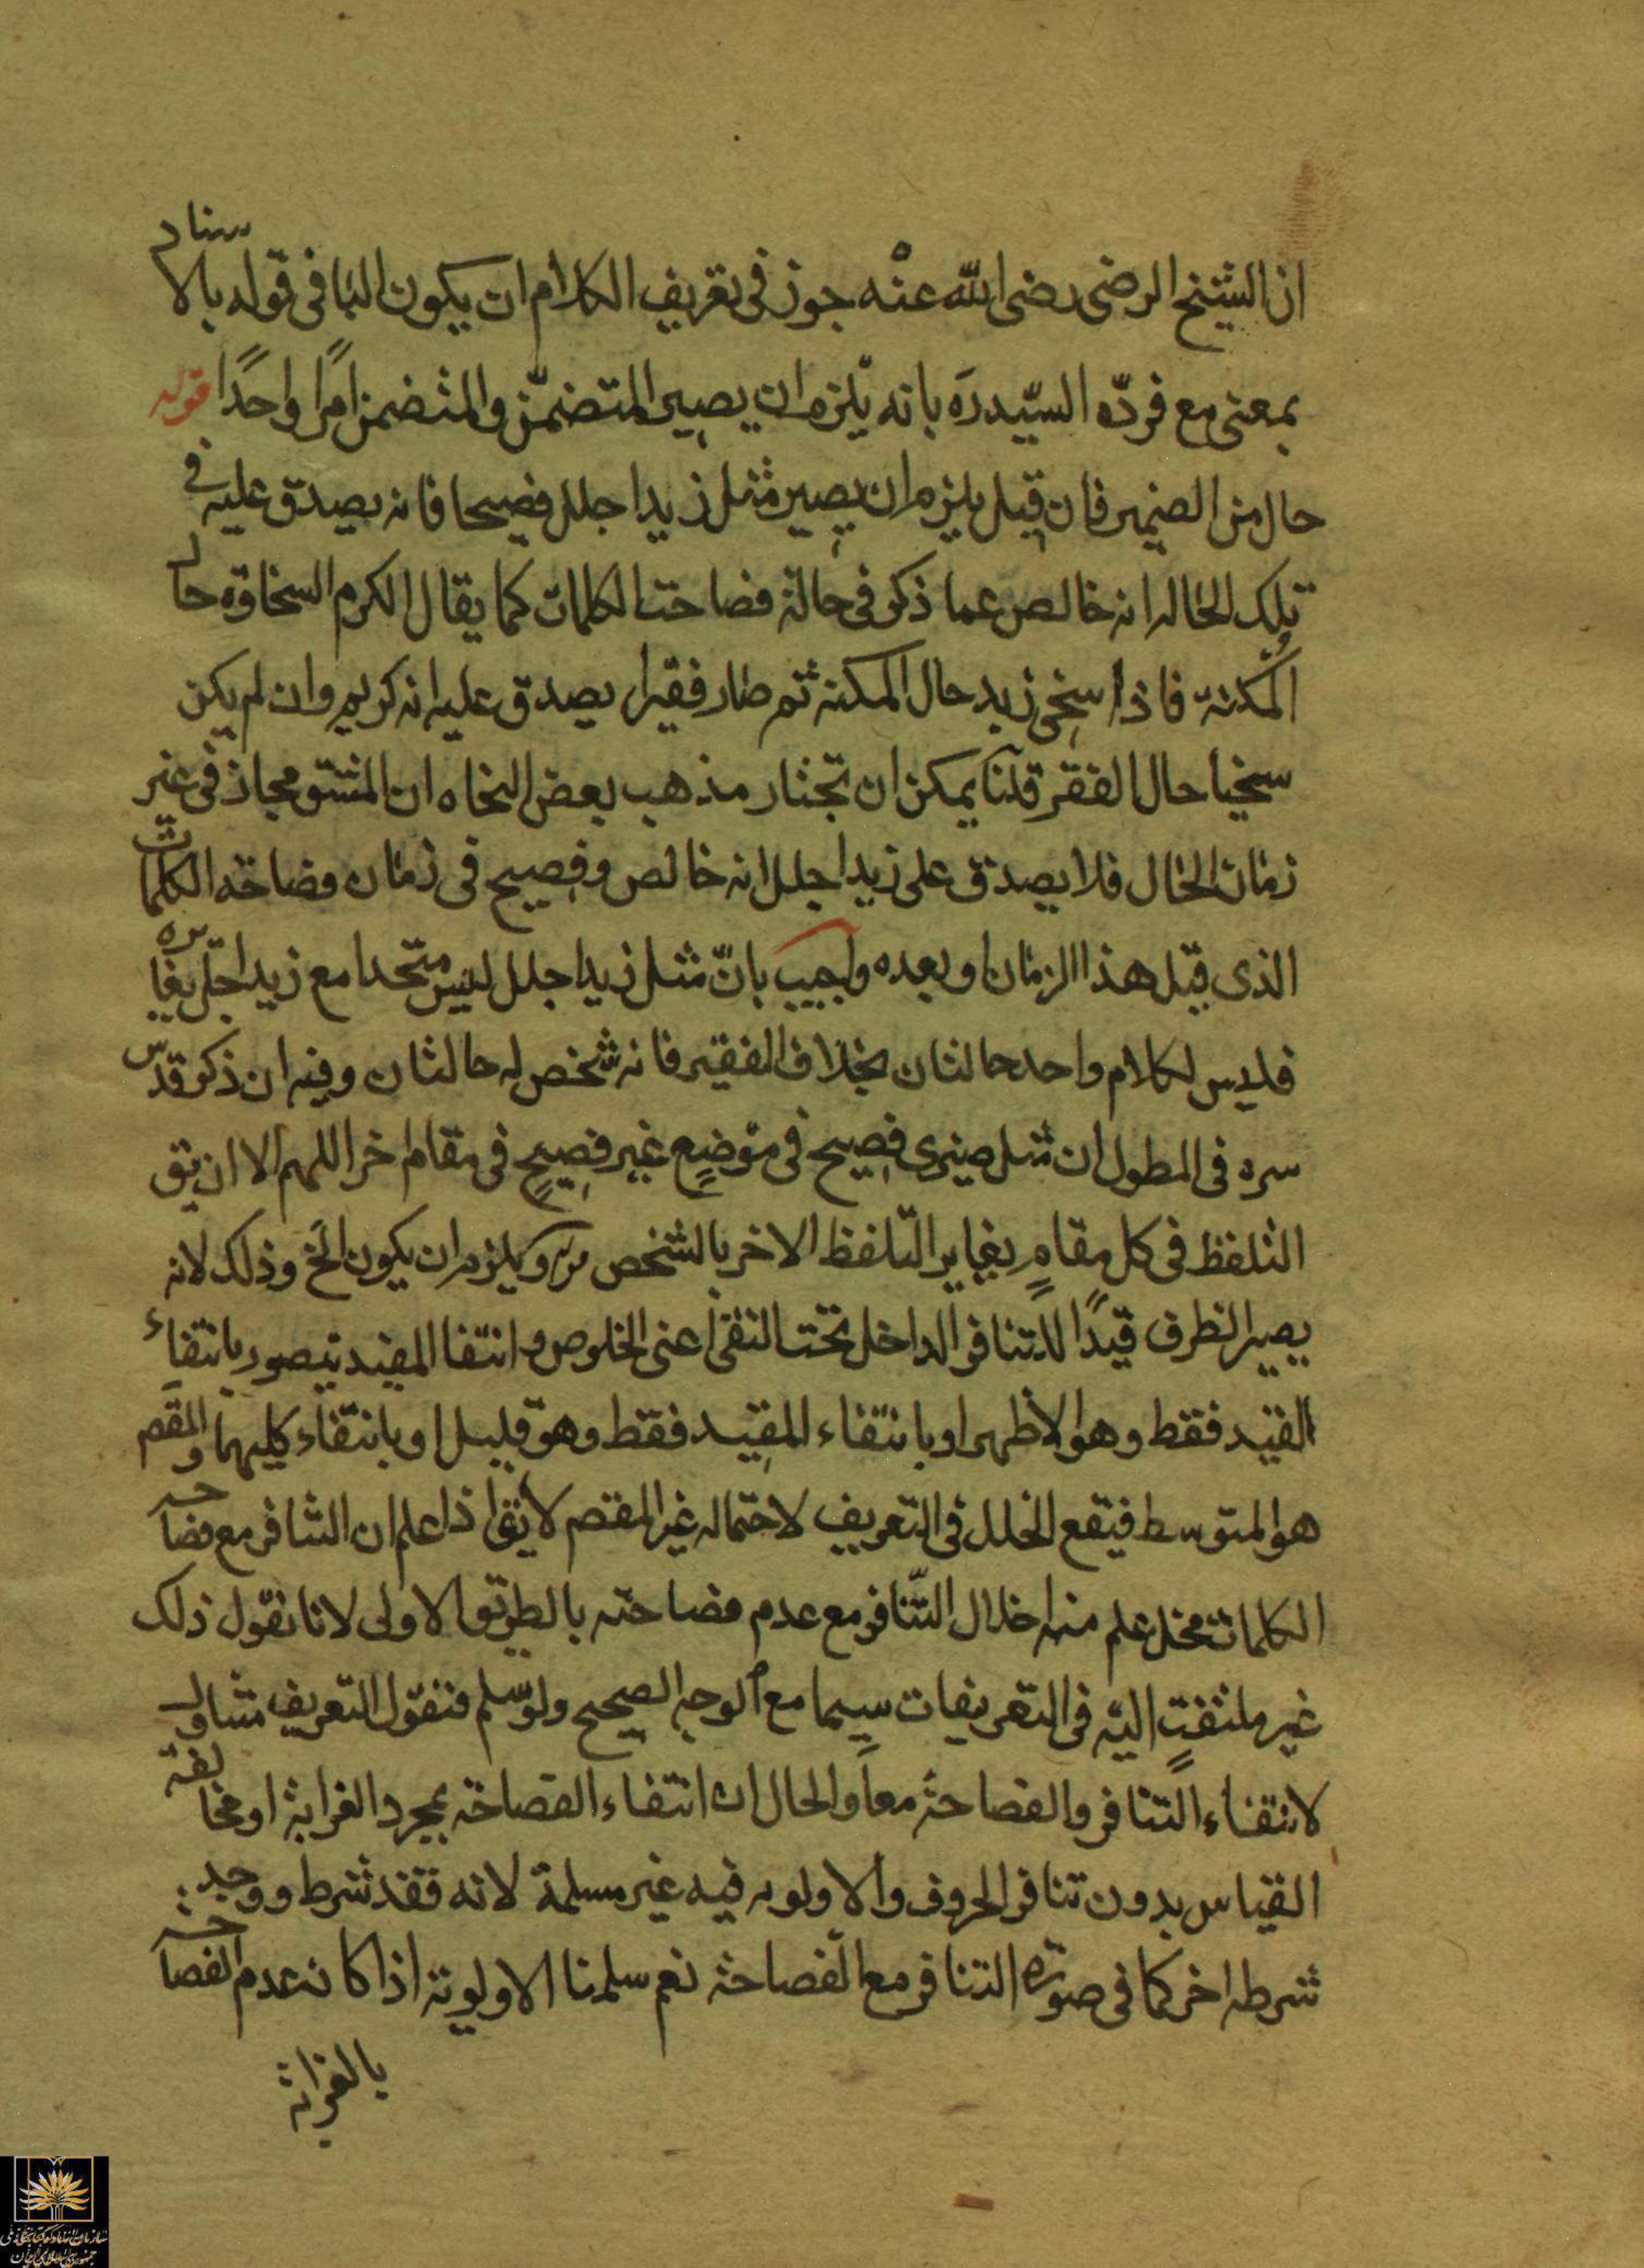 ان الشيخ الرضى رضى الله عنه جوز فى تعريف الكلام ان يكون البا فى قوله بالاسناد
بمعنى مع فردّه السيّد ره بانه يلزم ان يصير المتضمّن والمتضمن امرًا واحدًا قوله
حال من الضمير فان قيل يلزم ان يصير مثل زيد اجلل فصيحا فانه يصدق عليه فى
تلك الحاله انه خالص عما ذكر فى حالة فصاحت الكلمات كما يقال الكرم السخاوة حال
المكنة فاذا سخى زيد حال المكنة ثم صار فقيرا يصدق عليه انه كريم وان لم يكن
سخيا حال الفقر قلنا يمكن ان تختار مذهب بعض النحاه ان المشتق مجاز فى غير
زمان الحال فلا يصدق على زيد اجلل انه خالص وفصيح فى زمان فصاحة الكلمات
الذى قبل هذا الزمان او بعده واجيب بانّ مثل زيد اجلل ليس متحدا مع زيد اجلّ يغايره
فليس لكلام واحد حالتان بخلاف الفقير فانه شخص له حالتان وفيه ان ذكر قدّس
سره فى المطول ان مثل صيرى فصيح فى موضعٍ غير فصيحٍ فى مقام اخر اللهم الا ان يق
التلفظ فى كل مقامٍ يغاير التّلفظ الاخر بالشخص قوله ويلزم ان يكون الخ وذلك لانه
يصير الظرف قيدًا للتنافر الداخل تحت النفى اعنى الخلوص وانتفا المقيد يتصور بانتفاء
القيد فقط وهو الاظهر او بانتفاء المقيد فقط وهو قليل او بانتفاء كليهما والمقصم
هو المتوسط فيقع الخلل فى التعريف لاحتماله غير المقصم لا يقا اذا علم ان التنافر مع فصاحة
الكلمات مخل علم منه اخلال التّنافر مع عدم فصاحته بالطريق الاولى لانا نقول ذلك
غير ملتفتٍ اليه فى التعريفات سيما مع الوجه الصحيح ولو سلم فنقول التعريف متناول
لانتفاء التنافر والفصاحة معاً والحال ان انتفاء الفصاحة بمجرد الغرابة او مخالفة
القياس بدون تنافر الحروف والاولويه فيه غير مسلمة لانه فقد شرط ووجد
شرطه اخر كما فى صورة التنافر مع الفصاحة نعم سلمنا الاولوية اذا كان عدم الفصاحة
بالغرابة